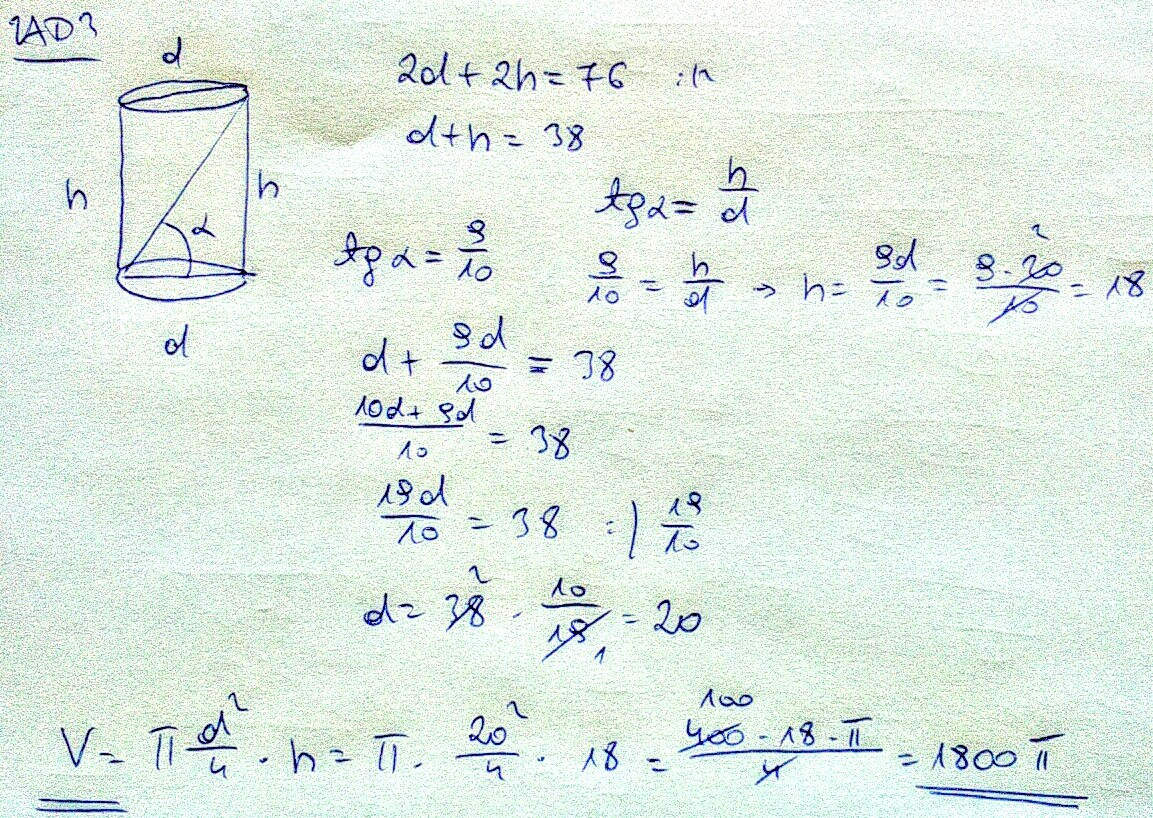 ZAD 3
d
2d + 2h = 76
d + h = 38
h h α
tg α = h/d
tg α = 9/10
9/10 = h/d → h = 9d/10 = 9·20/10 = 18
d
d + 9d/10 = 38
10d + 9d/10 = 38
19d/10 = 38 :| 19/10
d = 38 · 10/19 = 20
2 1
V = π d²/4 · h = π · 20²/4 · 18 = 400 · 18 · π/4 = 1800 π
100